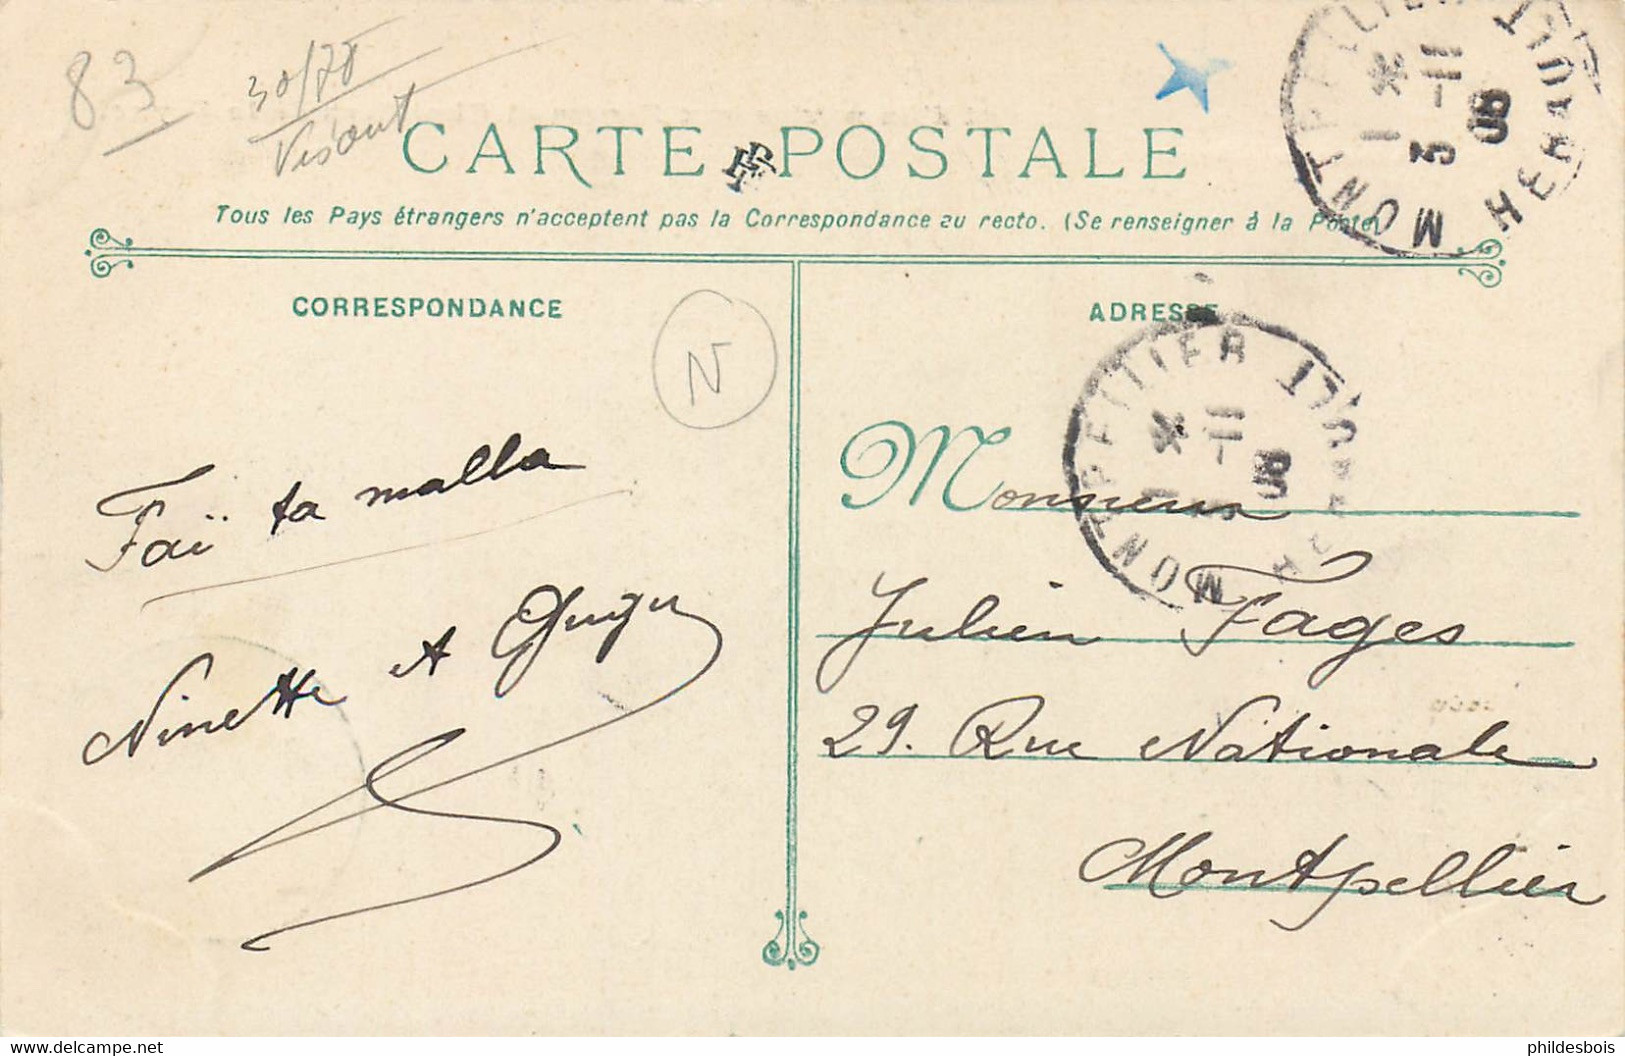 83
30/78
CARTE POSTALE
Tous les Pays étrangers n'acceptent pas la Correspondance au recto. (Se renseigner à la Poste)
MONTPELLIER HERAULT
1 * 11
5 - 09
CORRESPONDANCE
N
Faï ta malla
Ninette et
ADRESSE
MONTPELLIER HERAULT
* 11
09
Monsieur
Julien Fages
29. Rue Nationale
Montpellier
delcampe.net
phildesbois